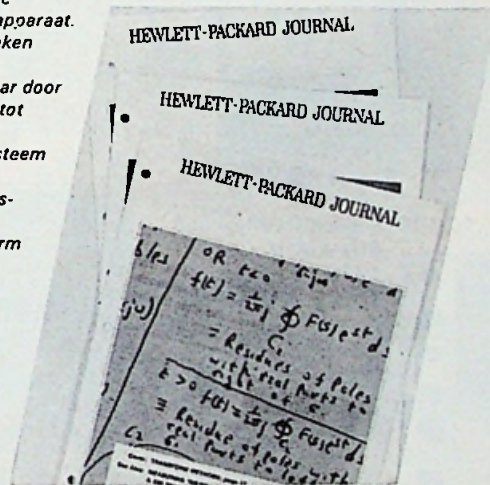 apparaat.
ken
ar door
tot
steem
s-
rm
HEWLETT-PACKARD JOURNAL
HEWLETT-PACKARD JOURNAL
HEWLETT-PACKARD JOURNAL
bles
OR t<0
f(t) = 1/2πj ∮ F(s)e^st ds
C₁
= Residues of Poles
with real parts to
right of C.
(jω)
t > 0 f(t) = 1/2πj ∮ F(s)e^st ds
C₂
= Residue of poles with
real parts to left
C₂